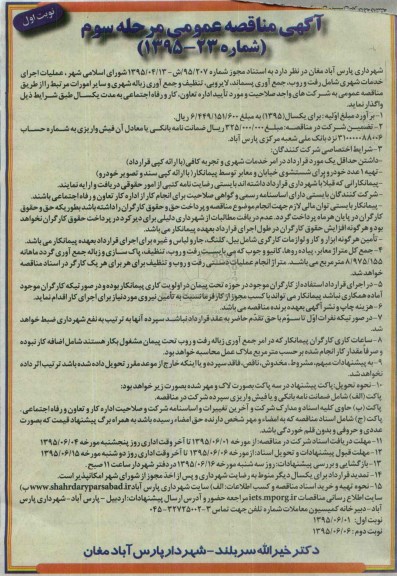 نوبت اول
آگهی مناقصه عمومی مرحله سوم
(شماره ۲۳-۱۳۹۵)
شهرداری پارس آباد مغان در نظر دارد به استناد مجوز شماره ۹۵/۲۰۷/ش-۱۳۹۵/۰۴/۱۳ شورای اسلامی شهر، عملیات اجرای
خدمات شهری شامل رفت و روب، جمع آوری پسماند، لایروبی، تنظیف و جمع آوری زباله شهری و سایر امورات مرتبط را از طریق
مناقصه عمومی به شرکت های واجد صلاحیت و مورد تأیید اداره تعاون، کار و رفاه اجتماعی به مدت یکسال طبق شرایط ذیل
واگذار نماید.
۱- برآورد مبلغ اولیه: برای یکسال (۱۳۹۵) به مبلغ ۶/۴۴۹/۱۵۱/۶۰۰ ریال
۲- تضمین شرکت در مناقصه: مبلغ ۳۲۵/۰۰۰/۰۰۰ ریال ضمانت نامه بانکی یا معادل آن فیش واریزی به شماره حساب
نزد بانک ملی شعبه مرکزی پارس آباد.
۳- شرایط اختصاصی شرکت کنندگان:
-داشتن حداقل یک مورد قرارداد در امر خدمات شهری و تجربه کافی (با ارائه کپی قرارداد)
-تهیه ۱ عدد خودرو برای شستشوی خیابان و معابر توسط پیمانکار (با ارائه کپی سند و تصویر خودرو)
-پیمانکارانی که قبلا با شهرداری قرارداد داشته اند بایستی رضایت نامه کتبی از امور حقوقی دریافت و ارایه نمایند.
-شرکت کنندگان بایستی دارای اساسنامه رسمی و گواهی صلاحیت برای انجام کار از اداره کار تعاون و رفاه اجتماعی باشند.
-پیمانکار بایستی توان مالی لازم جهت انجام موضوع مناقصه و پرداخت حقوق و حقوق کارگران را داشته باشد بطوریکه حق و حقوق
کارگران در پایان هر ماه پرداخت گردد. عدم دریافت مطالبات از شهرداری دلیلی برای دیرکرد در پرداخت حقوق کارگران نخواهد
بود و هرگونه افزایش حقوق کارگران در طول اجرای قرارداد بعهده پیمانکار می باشد.
-تأمین هرگونه ابزار و کار و لوازمات کارگری شامل بیل، کلنگ، جارو لباس و غیره برای اجرای قرارداد بعهده پیمانکار می باشد.
۴- جمع کل متراژ معابر، پیاده روها، کانیو و جوب که می بایست رفت و روب، تنظیف، پاک سازی و زباله جمع آوری گردد ماهانه
۸/۹۷۵/۱۵۵ مترمربع می باشد. متراژ انجام عملیات دستی رفت و روب و تنظیف برای هر یک کارگر در اسناد مناقصه
خواهد شد.
۵- در اجرای قرارداد استفاده از کارگران موجود در حوزه تحت پیمان در اولویت کاری پیمانکار بوده و در صورتیکه کارگران موجود
آماده همکاری نباشد پیمانکار می تواند با کسب مجوز از کارفرما نسبت به تأمین نیروی مورد نیاز برای اجرای کار اقدام نماید.
۶- هزینه چاپ و نشر آگهی بعهده برنده مناقصه می باشد.
۷- در صورتیکه نفرات اول تا سوم با حق تقدم حاضر به عقد قرارداد نباشند سپرده آنها به ترتیب به نفع شهرداری ضبط خواهد
شد.
۸- ساعات کاری کارگران پیمانکار که در امر جمع آوری زباله رفت و روب تحت پیمان مشغول بکار هستند شامل اضافه کار نبوده
و صرفا مقدار کار انجام شده بر حسب متر مربع ملاک عمل محاسبه خواهد بود.
۹- به پیشنهادات مبهم، مشروط، مخدوش، ناقص، فاقد سپرده و یا اینکه خارج از موعد مقرر تحویل داده شده باشد ترتیب اثر داده
نخواهد شد.
۱۰- نحوه تحویل: پاکت پیشنهاد در سه پاکت بصورت لاک و مهر شده بصورت زیر خواهد بود:
پاکت (الف) شامل ضمانت نامه بانکی و یا فیش واریزی سپرده شرکت در مناقصه.
پاکت (ب) حاوی کلیه اسناد و مدارک شرکت و آخرین تغییرات و اساسنامه شرکت و صلاحیت اداره کار و تعاون و رفاه اجتماعی.
پاکت (ج) شامل اسناد مناقصه که به امضاء و مهر شخص دارنده حق امضاء رسیده باشد به همراه برگ پیشنهاد قیمت که بصورت
عددی و حروفی و بدون قلم خوردگی باشد.
۱۱- مهلت دریافت اسناد شرکت در مناقصه: از مورخه ۱۳۹۵/۰۶/۰۱ تا آخر وقت اداری روز پنجشنبه مورخه ۱۳۹۵/۰۶/۰۴
۱۲- مهلت قبول پیشنهادات و تحویل اسناد: از مورخه ۱۳۹۵/۰۶/۰۶ تا آخر وقت اداری روز دو شنبه مورخه ۱۳۹۵/۰۶/۱۵
۱۳- بازگشایی و بررسی پیشنهادات: روز سه شنبه مورخه ۱۳۹۵/۰۶/۱۶ در دفتر شهردار ساعت ۱۱ صبح.
۱۴- تمدید قرارداد برای یکسال دیگر منوط به رضایت شهرداری و پس از اخذ مجوز از شورای شهر امکانپذیر است.
۱۵- نحوه تهیه و خرید اسناد مناقصه و کسب اطلاعات: الف) سایت شهرداری پارس آباد www.shahrdaryparsabad.ir ب)
سایت اطلاع رسانی مناقصات iets.mporg.ir مراجعه حضور و آدرس ارسال پیشنهادات: اردبیل - پارس آباد - شهرداری پارس
آباد- دبیرخانه کمیسیون معاملات شماره تلفن جهت تماس ۳-۳۲۷۲۵۰۰۲-۰۴۵
نوبت اول: ۱۳۹۵/۰۶/۰۱
نوبت دوم: ۱۳۹۵/۰۶/۰۶
دکتر خیرالله سربلند - شهردار پارس آباد مغان